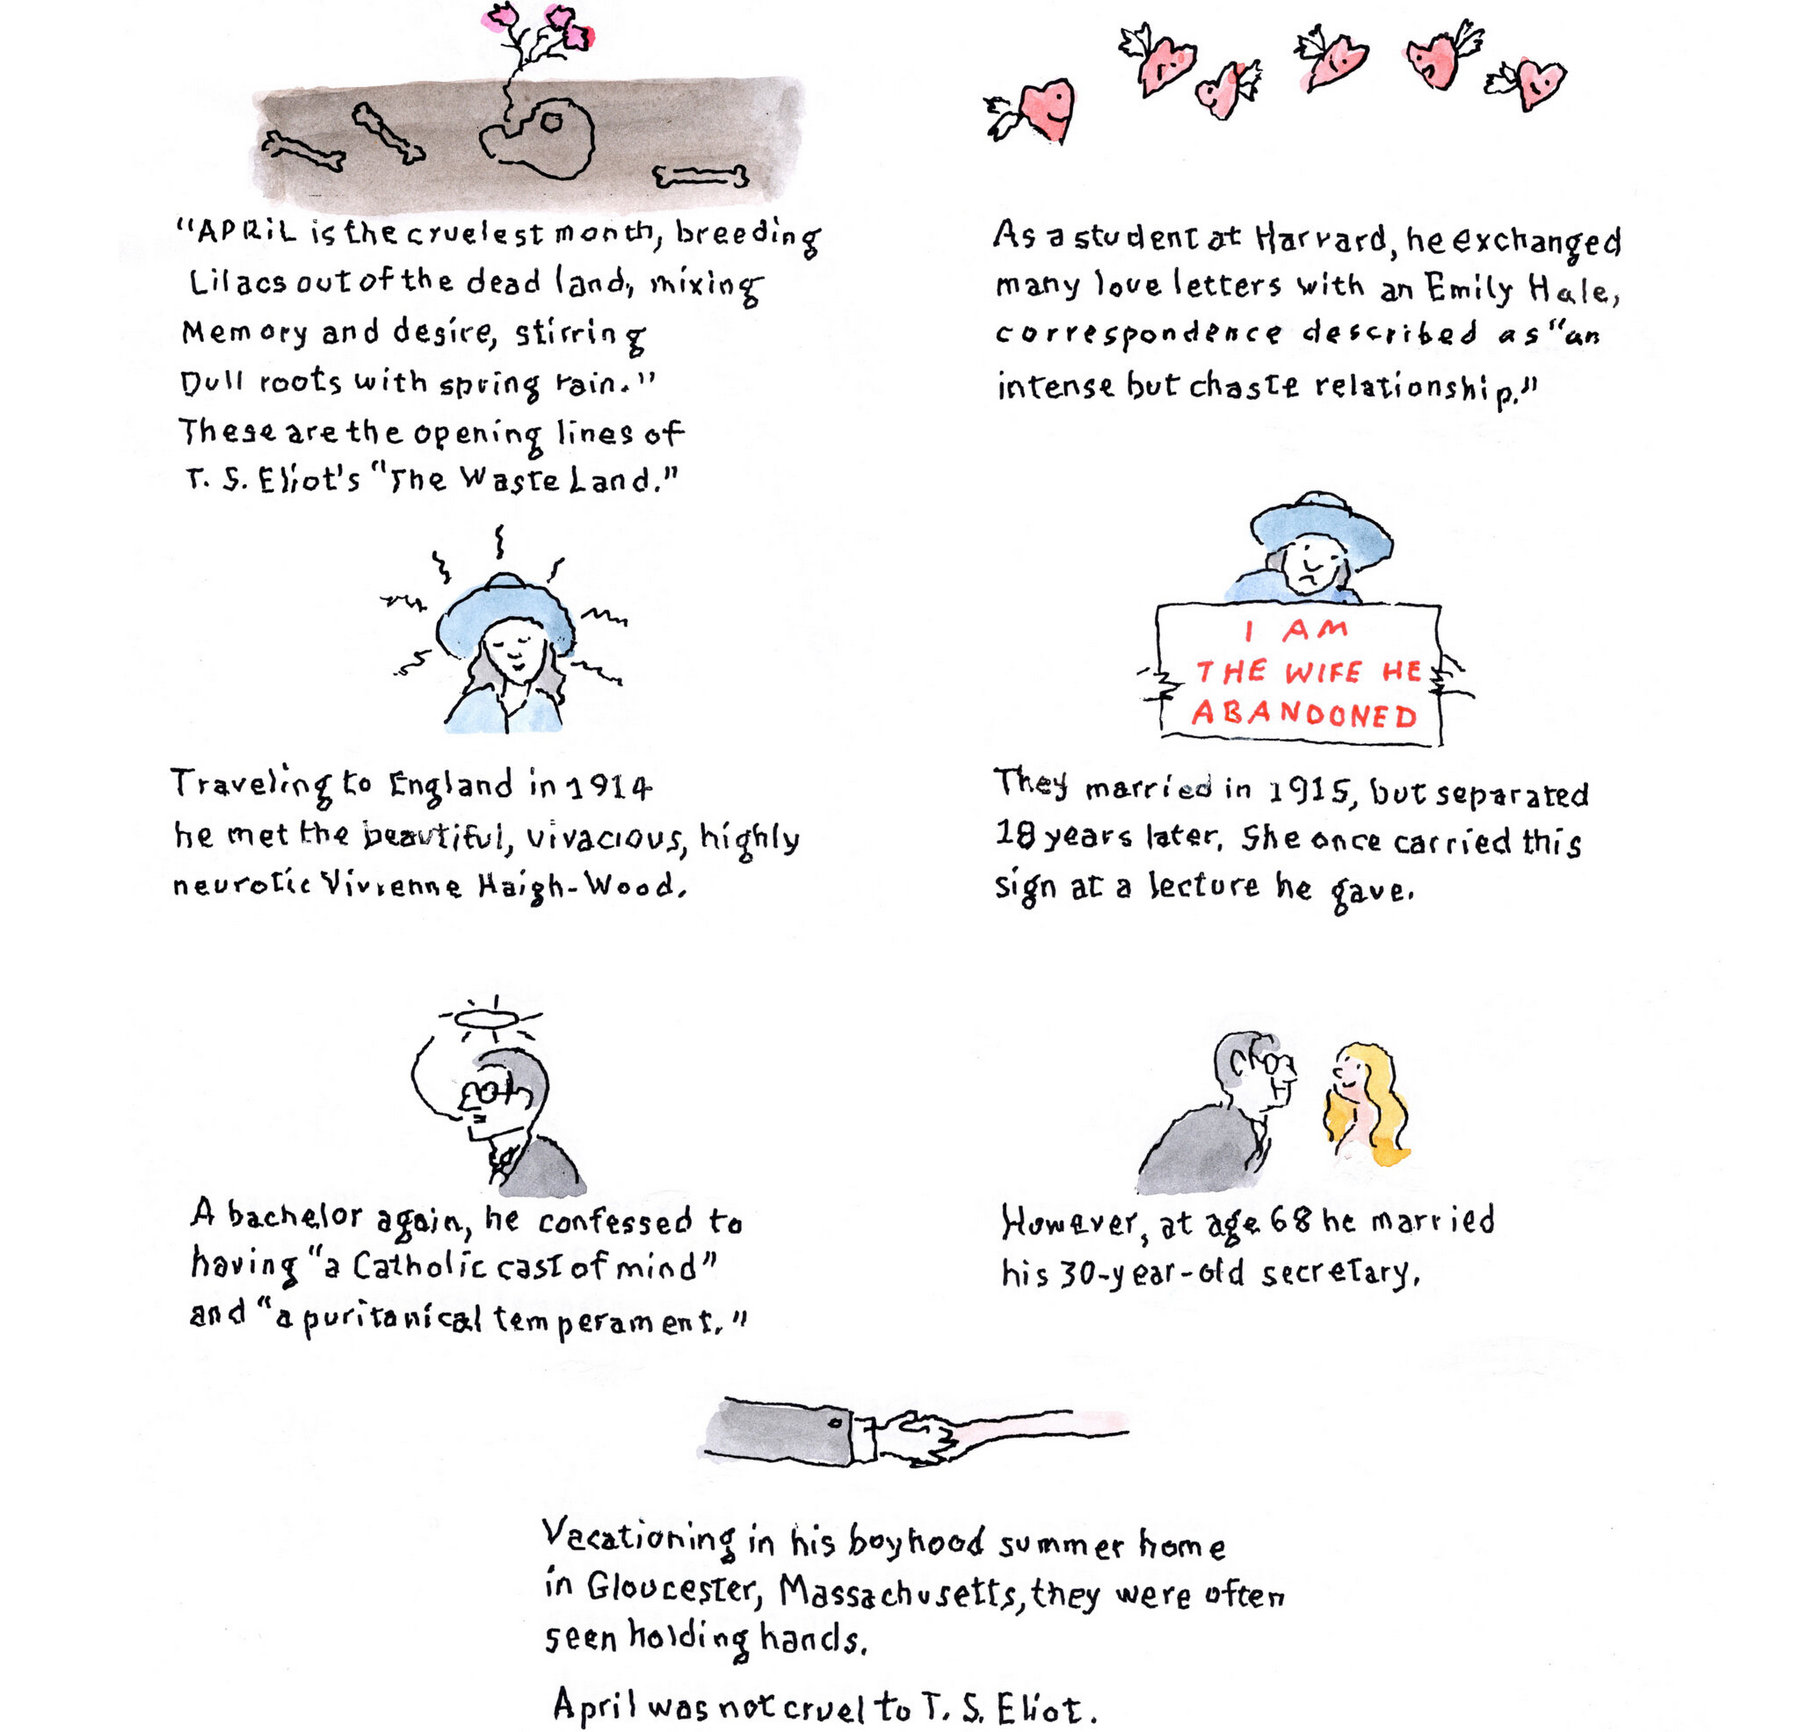 “APRIL is the cruelest month, breeding
Lilacs out of the dead land, mixing
Memory and desire, stirring
Dull roots with spring rain.”
These are the opening lines of
T. S. Eliot's “The Waste Land.”
As a student at Harvard, he exchanged
many love letters with an Emily Hale,
correspondence described as “an
intense but chaste relationship.”
Traveling to England in 1914
he met the beautiful, vivacious, highly
neurotic Vivienne Haigh-Wood.
I AM
THE WIFE HE
ABANDONED
They married in 1915, but separated
18 years later. She once carried this
sign at a lecture he gave.
A bachelor again, he confessed to
having “a Catholic cast of mind”
and “a puritanical temperament.”
However, at age 68 he married
his 30-year-old secretary.
Vacationing in his boyhood summer home
in Gloucester, Massachusetts, they were often
seen holding hands.
April was not cruel to T. S. Eliot.